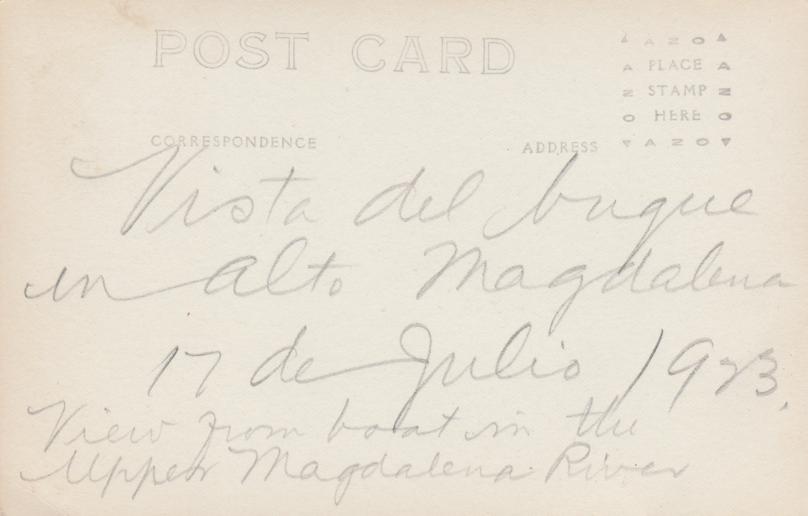 POST CARD
AZO
PLACE
STAMP
HERE
AZO
CORRESPONDENCE
ADDRESS
Vista del buque
in alto Magdalena
17 de Julio 1923.
View from boat in the
Upper Magdalena River